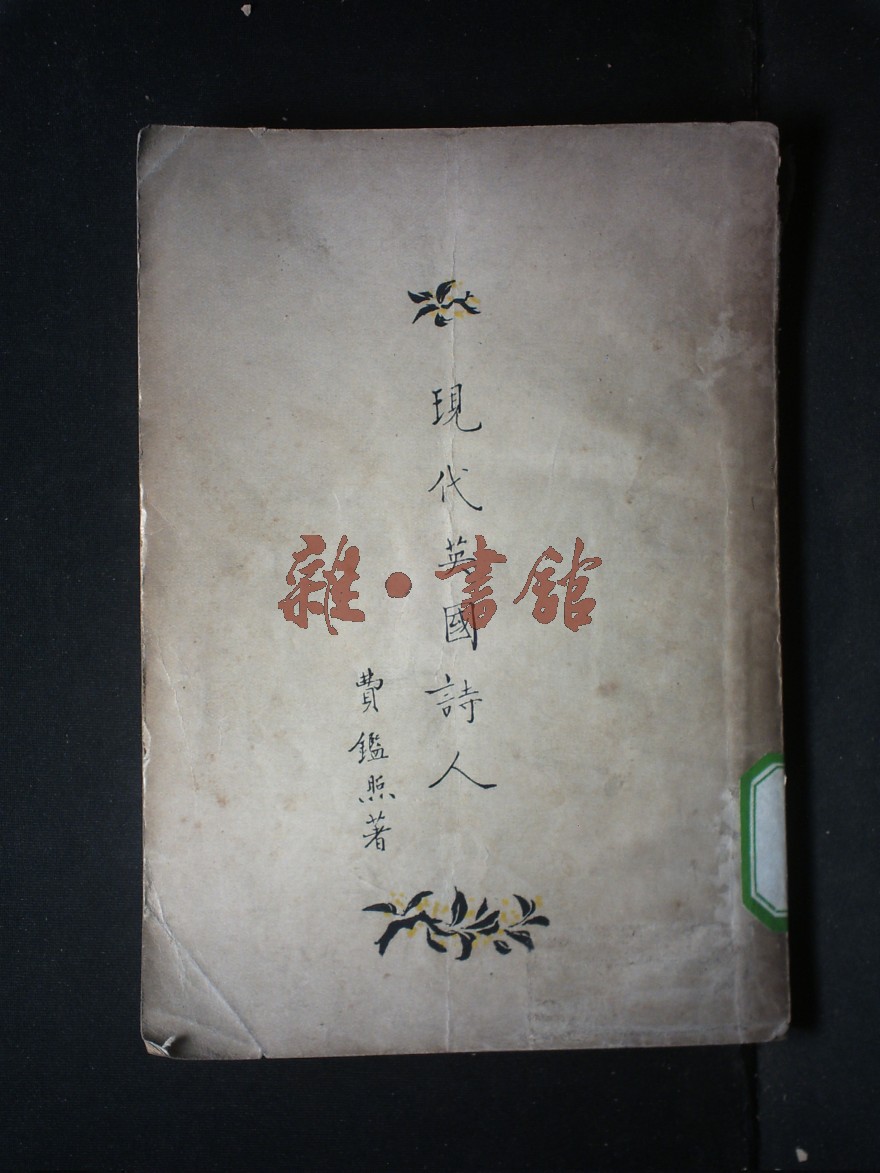 現代英國詩人
費鑑照著
雜·書館